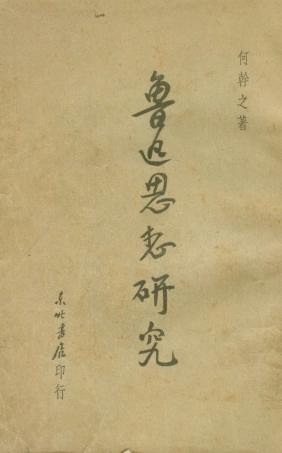 何幹之著
魯迅思想研究
东北書店印行